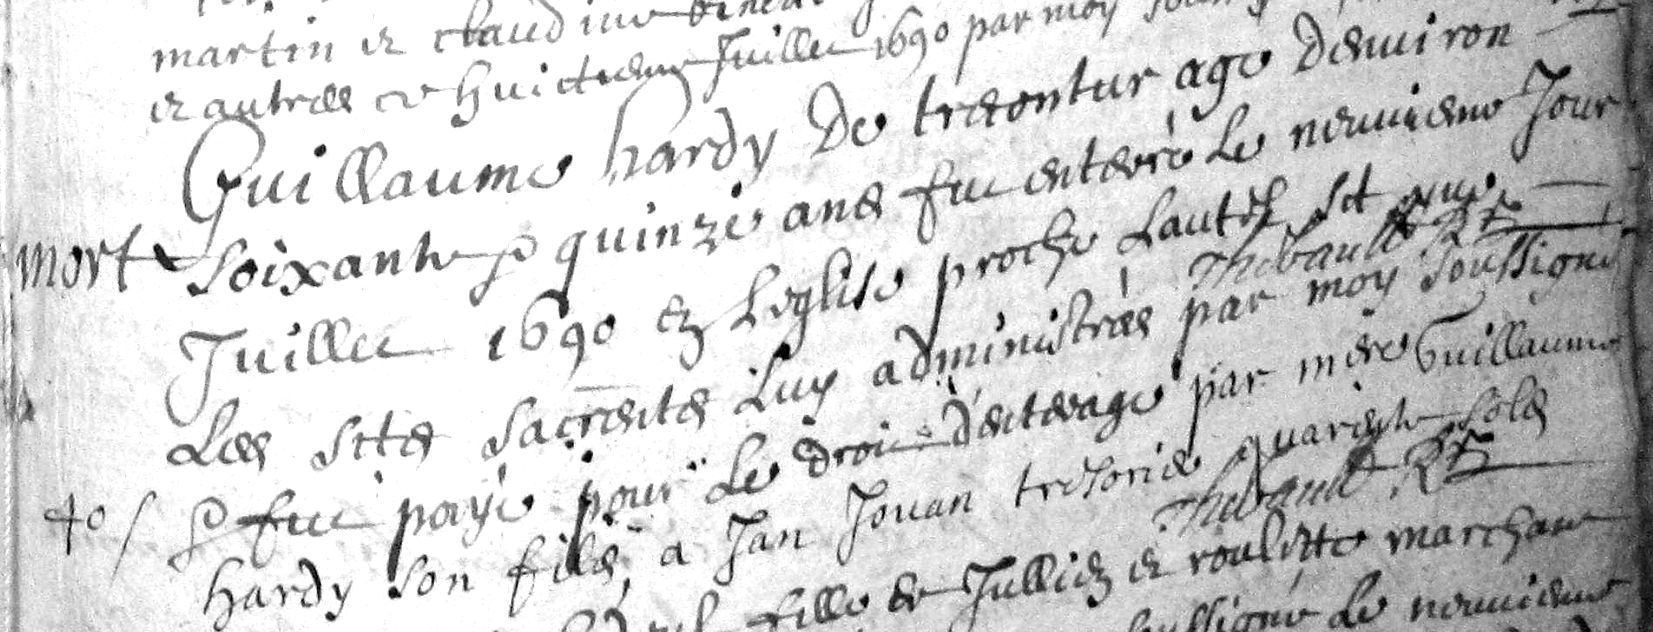 martin et claudine
et autres ce huictieme Juillet 1690 par moy
Guillaume hardy de treontur age denviron
mort soixante et quinze ans fut enterré le neuvieme Jour
Juillet 1690 en Leglise proche Lautel st
Thébault Rr
Les stes sacrents Luy administres par moy soussigné
40 s et fut payé pour le droit denterage par mere Guillaume
hardy son fils, a Jan Jouan tresorier quarente sols
Thébault Rr
fille de Jullien et roulette marchant
soussigné le neuvieme